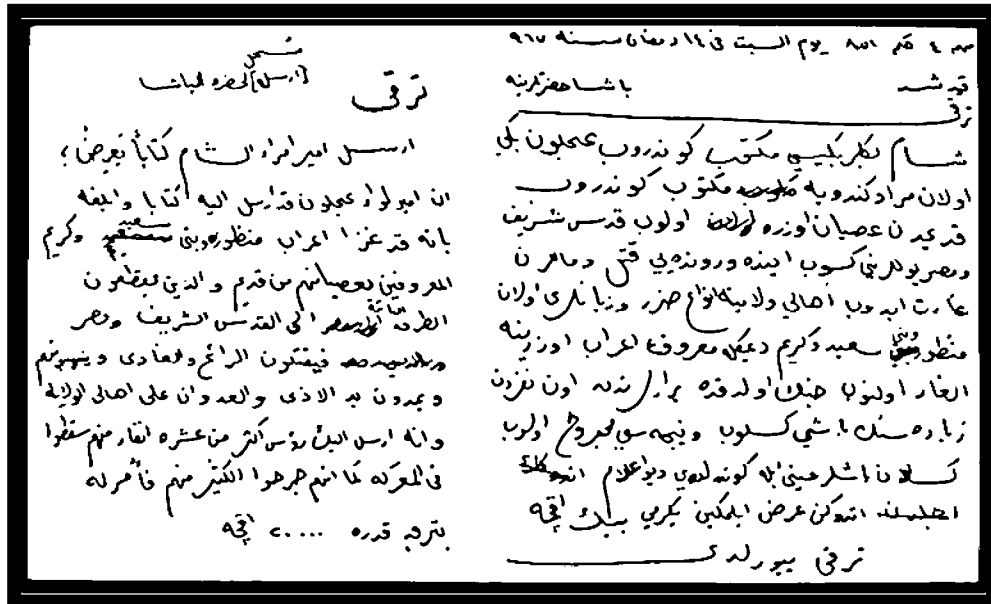 ٤ حكم ٨٥١ يوم السبت في ١٤ رمضان سنه ٩٦٧
قيد شد
باشا حضرتلرينه
ترقى
شام بكلربكيسي مكتوب كوندروب عجلون بكي
اولان مراد كندويه مكتوب كوندروب
قديمدن عصيان اوزره اولوب قدس شريف
ومصر يوللرني كسوب آينده ورونده يي قتل و
غارت ايدوب اهالي ولايته انواع ضرر وزيانلرى اولان
سعيد وكريم ديمكله معروف اعراب اوزرينه
الغار اولنوب جنك اولدقده اون نفردن
زياده سنك باشي كسلوب ونيجه سي مجروح اولوب
كسلان باشلر عيني ايله كوندلدي ديو اعلام
عرض ايلمكين يكرمي بيك اقچه
ترقى بيورلدى
[ارسل] لحضره الباشا
ترقى
ارسل امير امراء الشام كتاباً يعرض؛
ان امير لواء عجلون قد ارسل اليه كتابا وابلغه
بانه قد غزا اعراب وبنى سعيد وكريم
المعروفين بعصيانهم من قديم والذين يقطعون
الطرق الى القدس الشريف ومصر
فيقتلون الرائح والغادى وينهبونهم
ويمدون يد الاذى والعدوان على اهالى الولايه
وانه ارسل اليك رؤس اكثر من عشره انفار منهم سقطوا
في المعركه كما انهم جرحوا الكثير منهم فأمر له
بترقيه قدره ٢٠٠٠٠ اقچه